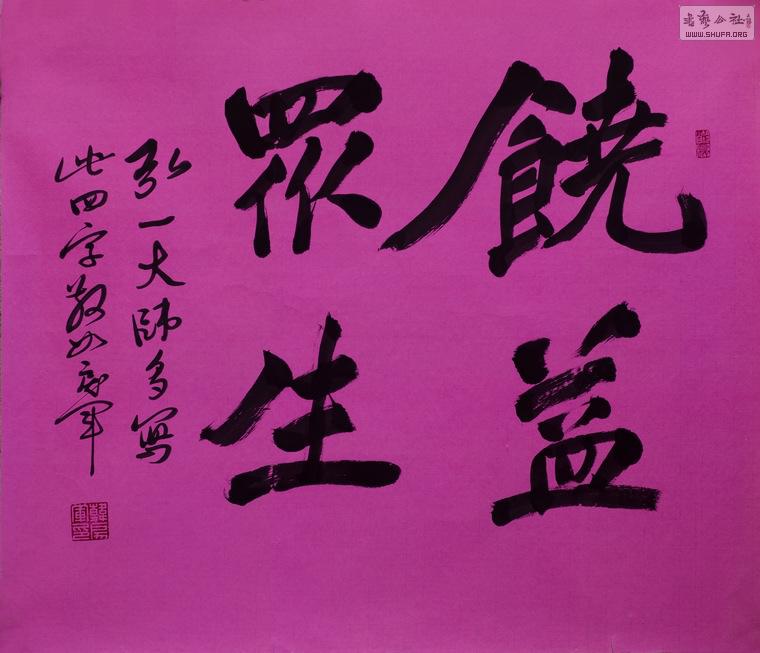 饒益
眾生
弘一大師多寫
此四字敬
書艺公社
WWW.SHUFA.ORG